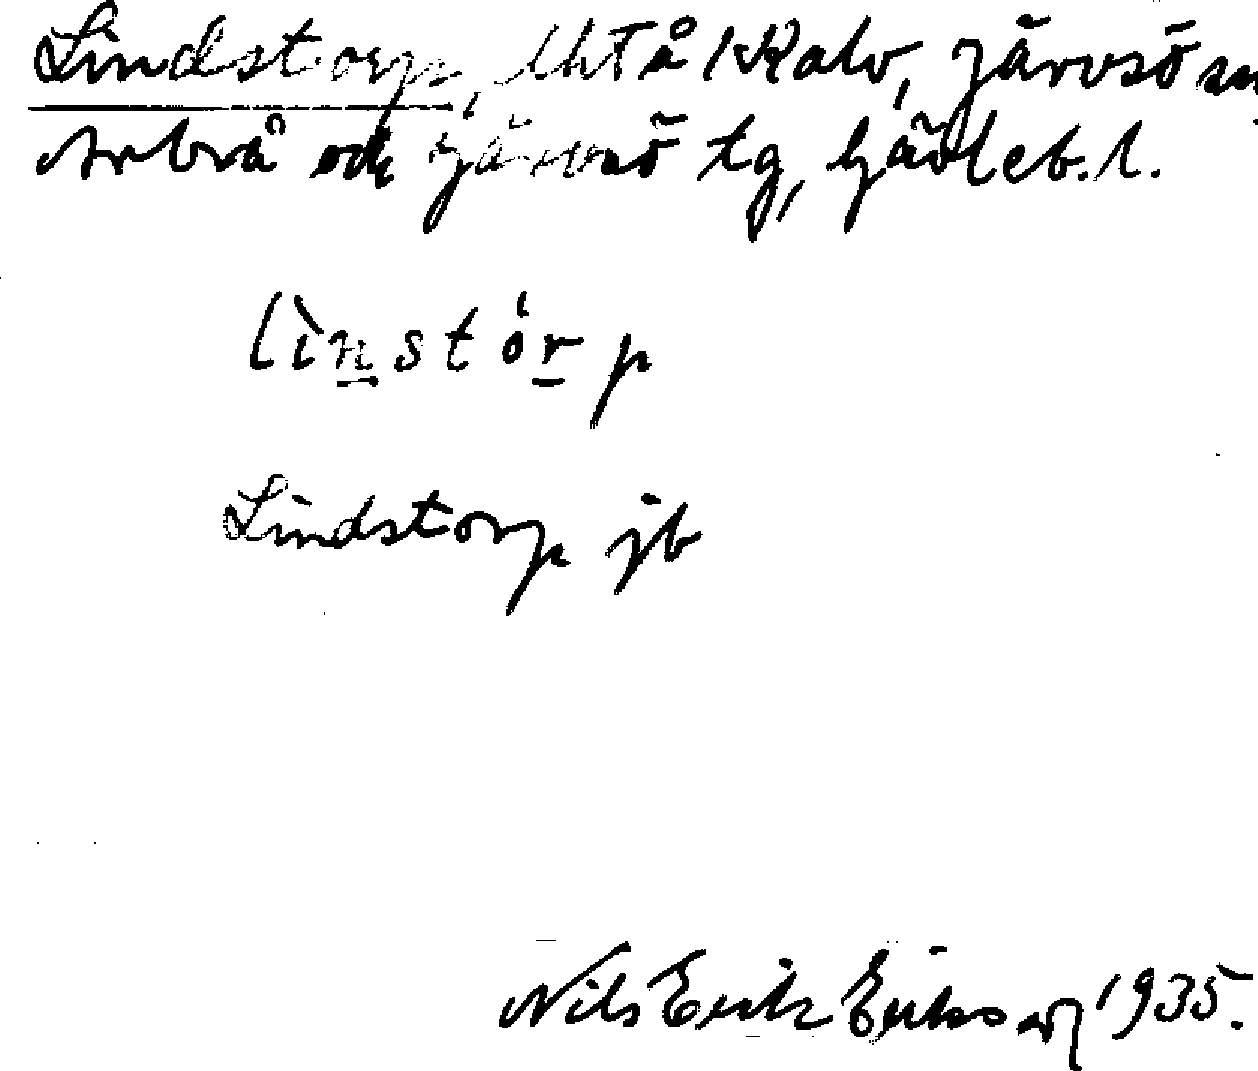 Lindstorp, UhTå 1 Kalv, Järvsö sn,
Arbrå och Järvsö tg, Gävleb. l.
lìnstó̱rp
Lindstorp jb
Nils Erik Eriksson 1935.